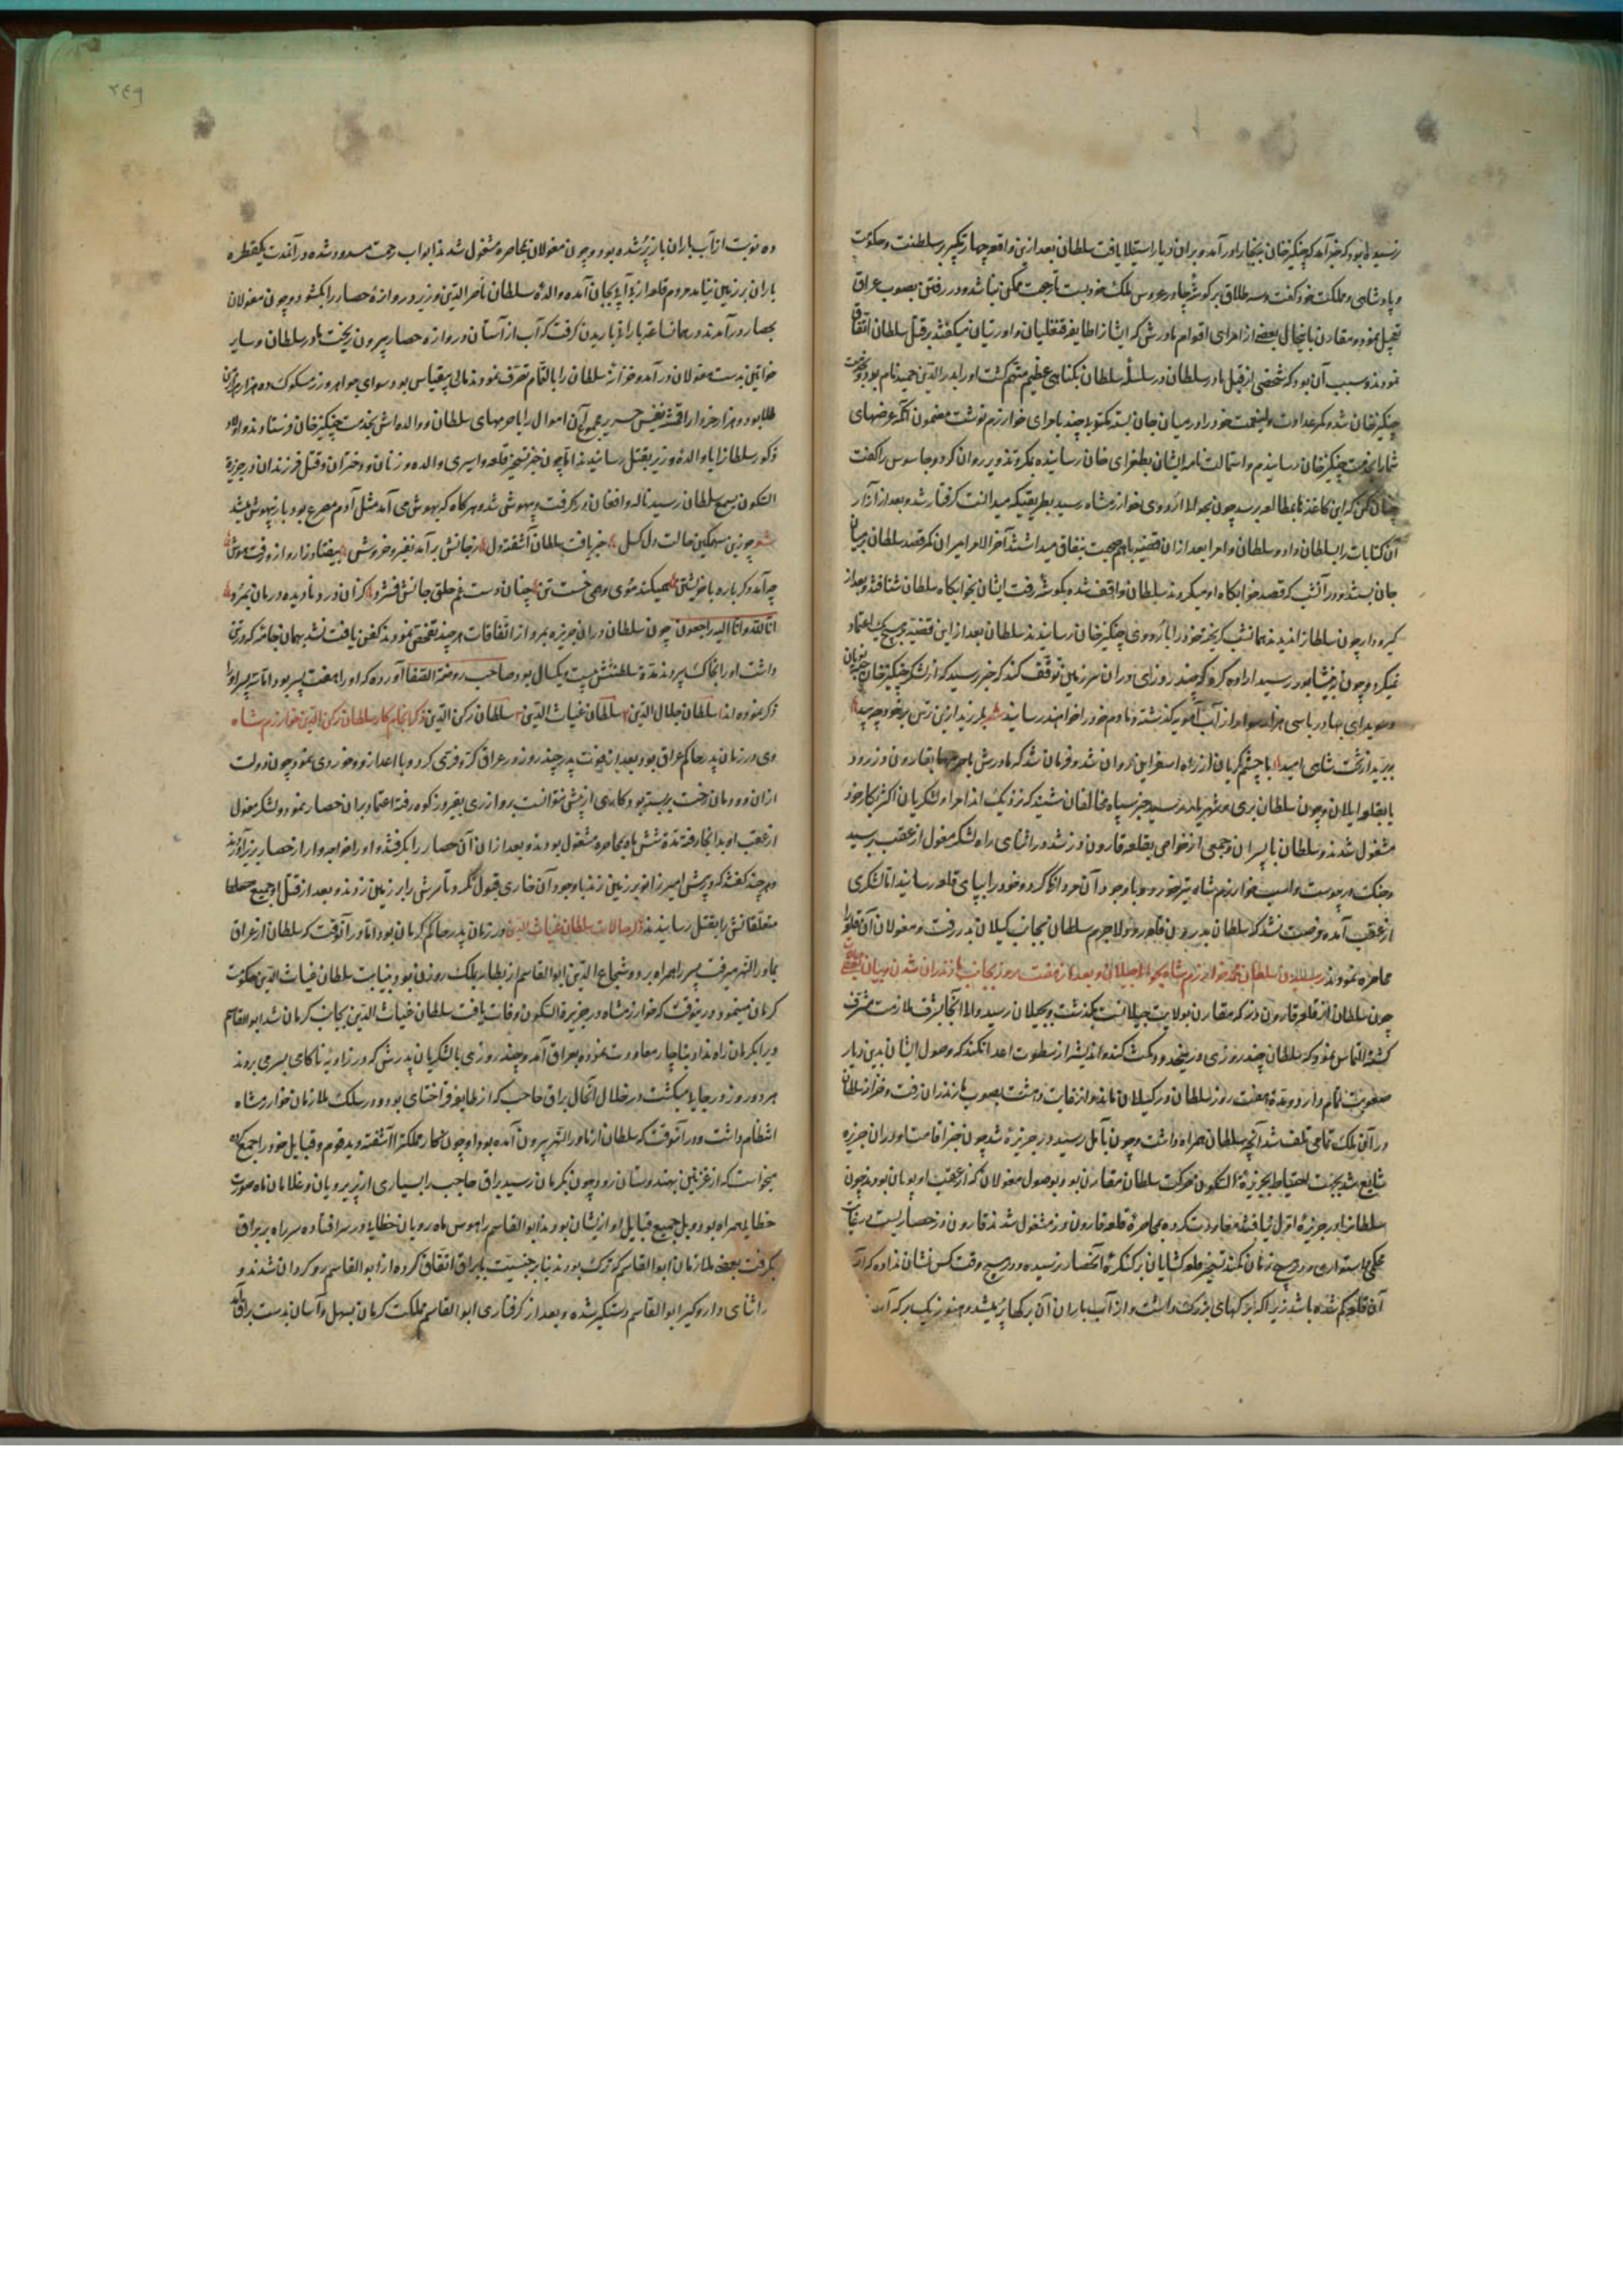 رسیده بود که خبر آمد که چنگیز خان ببخارا در آمد و بران دیار استیلا یافت سلطان بعد ازین واقعه چهار تکبیر بر سلطنت و حکومت
و پادشاهی و مملکت خود گفت و سه طلاق بر گوشه چادر عروس ملک خود بست تا رجعت ممکن نباشد و در رفتن بصوب عراق
تعجیل نمود و مقارن باینحال بعضی از امرای اقوام مادرش که ایشانرا طایفه قنغلیان و اورتیان میگفتند بر قتل سلطان اتفاق
نمودند و سبب آن بود که شخصی از قبل مادر سلطان در سلسله سلطان بگناهی عظیم متهم گشت او را بدر الدین حمید نام بود
چنگیز خان شد و کمر عداوت ولینعمت خود را در میان جان بسته مکتوبه چند بامرای خوارزم نوشت مضمون آنکه عرضهای
شما را بخدمت چنگیز خان رسانیدم و استمالت نامه ایشان بطغرای خان رسانیده بمکر و تذویر روان کرد و جاسوس را گفت
چنان کن که این کاغذها بمطالعه برسد چون بحوالا اردوی خوارزمشاه رسید بطریقیکه میدانست گرفتار شد و بعد از آزار
آن کتابات را بسلطان داد و سلطان و امرا بعد ازان قضیه باهم صحبت بنفاق میداشتند آخر الامر امیران که قصد سلطان بر میان
جان بستند در آنشب که قصد خوابگاه او میکردند سلطان واقف شده بگوشه رفت ایشان بخوابگاه سلطان شتافتند و بعد از
گیر و دار چون سلطانرا ندیدند همانشب گریخته خود را باردوی چنگیز خان رسانیدند سلطان بعد از این قضیه بر هیچ یک اعتماد
نمیکرد و چون به نیشابور رسید اراده کرد که چند روزی دران سرزمین توقف کند که خبر رسید که از لشکر چنگیز خان
و سوبدای بهادر با سی هزار سوار از آب آمویه گذشته و مادم خود را خواهند رسانید شعر بلرزید ازین ترس بر خود چو بید
ببرید از تخت شاهی امید با چشم گریان از راه اسفراین روان شد و فرمان شد که مادرش با حرمها بقارون دز رود
یا بقلعه ایلان و چون سلطان بری و شهریار رسید خبر سپاه مخالفان شنید که نزدیک اند امرا و لشکریان اکثر بکار خود
مشغول شدند و سلطان با پسران و جمعی از خواص بقلعه قارون دز شد در اثنای راه لشکر مغول از عقب برسید
و جنگ در پیوست و اسب خوارزمشاه تیر خورد و با وجود آن مردانگی کرد و خود را بپای قلعه رسانید اما لشکری
از عقب آمده فرصت نشد که سلطان بدرون قلعه رود لاجرم سلطان بجانب گیلان بدر رفت و مغولان آن قلعه را
محاصره نمودند رسیدن سلطان محمد خوارزمشاه بحوالا جیلان و بعد از هفت روز بجانب مازندران شدن و بیان
چون سلطان از قلعه قارون دز که مقارن بولایت جیلانست بگذشت و بجیلان رسید والا آنجا بشرف ملازمت مشرف
گشته التماس نمود که سلطان چند روزی در پنحدود مکث کند و اندیشه از سطوت اعدا نکند که وصول ایشان بدین دیار
صعوبت تمام دارد و مدة هفت روز سلطان در گیلان ماند و از غایت دهشت بصوب مازندران رفت و خزانه سلطان
در آن ملک تمامی تلف شد آنچه سلطان همراه داشت و چون بآمل رسید و در جزیره شد چون خبر اقامت او دران جزیره
شایع شد بجهت احتیاط بجزیرۀ آبسکون حرکت سلطان مقارن بود بوصول مغولان که از عقب او پویان بودند چون
سلطانرا در جزیره اول نیافتند معاودت کرده بمحاصره قلعه قارون دز مشغول شدند قارون دز حصاریست در غایت
محکمی و استواری و در هیچ زمان کمند تسخیر قلعه کشایان بر کنکره آنحصار نرسیده و در هیچ وقت کس نشان نداده که در
آن قلعه کم شده باشد زیرا که برکهای بزرگ داشت و از آب باران آن برکها پر میشد و هنوز یک برکه آب
ده نوبت از آب باران باز پر شده بود و چون مغولان بمحاصره مشغول شدند ابواب رحمت مسدود شده در آنمدت یکقطره
باران بر زمین نیامد مردم قلعه از بی آبی بجان آمده والده سلطان ناصر الدین وزیر دروازه حصار را بگشود و چون مغولان
بحصار در آمدند در همانساعت باران باریدن گرفت که آب از آستان دروازه حصار بیرون ریخت مادر سلطان و سایر
خواتین بدست مغولان در آمد و خزانه سلطان را بالتمام تصرف نمودند مالی بیقیاس بود سوای جواهر و زر مسکوک ده هزار هزار
طلا بود و هزار خروار اقمشه نفیس حریر مجموع آن اموال را با حرمهای سلطان و والده اش بخدمت چنگیز خان فرستادند و اولاد
ذکور سلطانرا با والده وزیر بقتل رسانیدند اما چون خبر تسخیر قلعه و اسیری والده و زنان و دختران و قتل فرزندان در جزیره
آبسکون بسمع سلطان رسید ناله و افغان در گرفت و بیهوش شد و هر گاه که بهوش می آمد مثل آدم مصروع بود باز بیهوش میشد
شعر چو زین سهمگین حالت دل گسل خبر یافت سلطان آشفته دل ز جانش بر آمد نفیر و خروش بیفتاد زار و ازو رفت هوش
چو آمد دگر باره با خویشتن همیکند موی و همی خست تن چنان دست غم حلق جانش فشرد کزان درد نادیده درمان بمرد
انا لله و انا الیه راجعون چون سلطان دران جزیره بمرد از اتفاقات هر چند تفحص نمودند کفن یافت نشد بهمان جامه که در تن
داشت او را بخاک سپردند مدة سلطنتش بیست و یکسال بود صاحب روضة الصفا آورده که او را هفت پسر بود اما سه پسر او را
ذکر نموده اند سلطان جلال الدین سلطان غیاث الدین سلطان رکن الدین ذکر انجام کار سلطان رکن الدین خوارزمشاه
وی در زمان پدر حاکم عراق بود بعد از فوت پدر چند روز در عراق کر و فری کرد و با اعدا زد و خوردی نمود چون دولت
ازان دودمان رخت بر بسته بود کاری از پیش نتوانست برد از ری بفیروزکوه رفته اعتماد بران حصار نمود و لشکر مغول
از عقب او بدانجا رفته مدة شش ماه بمحاصره مشغول بودند و بعد ازان آن حصار را بگرفتند و او را خواه و ناچار از حصار بزیر آوردند
و هر چند گفتند که پیش امیر زانو بر زمین زند با وجود آن خاری قبول نکرد تا سرش را بر زمین زدند و بعد از قتل او جمیع
متعلقانش را بقتل رسانیدند ذکر حالات سلطان غیاث الدین در زمان پدر حاکم کرمان بود اما در آنوقت که سلطان از عراق
بماورالنهر میرفت پسر را همراه برد و شجاع الدین ابو القاسم از بطانه ملک زوزن بود و بنیابت سلطان غیاث الدین حکومت
کرمان مینمود در ینوقت که خوارزمشاه در جزیره آبسکون وفات یافت سلطان غیاث الدین بجانب کرمان شد ابو القاسم
ویرا بکرمان راه نداد بناچار معاودت نموده بعراق آمد و چند روزی با لشکریان پدرش که در زاویه ناکامی بسر می بردند
هر دو روز در جایی میگشت در خلال اینحال براق حاجب که از طایفه قراختای بود و در سلک ملازمان خوارزمشاه
انتظام داشت و در آنوقت که سلطان از ماورالنهر بیرون آمده بود او چون کار مملکت را آشفته دید قوم و قبایل خود را جمع کرده
میخواست که از غزنین بهندوستان رود چون بکرمان رسید براق حاجب را بسیاری از پریرویان و غلامان ماه صورت
خطایی همراه بود و بل جمیع قبایل او ازیشان بودند ابو القاسم را هوس ماه رویان خطایی در سر افتاده سر راه بر براق
بگرفت بعضی ملازمان ابو القاسم که ترک بودند بنا بر جنسیت با براق اتفاق کرده از ابو القاسم رو گردان شدند و
در اثنای دار و گیر ابو القاسم دستگیر شده و بعد از گرفتاری ابو القاسم مملکت کرمان بسهل و آسان بدست براق آمد